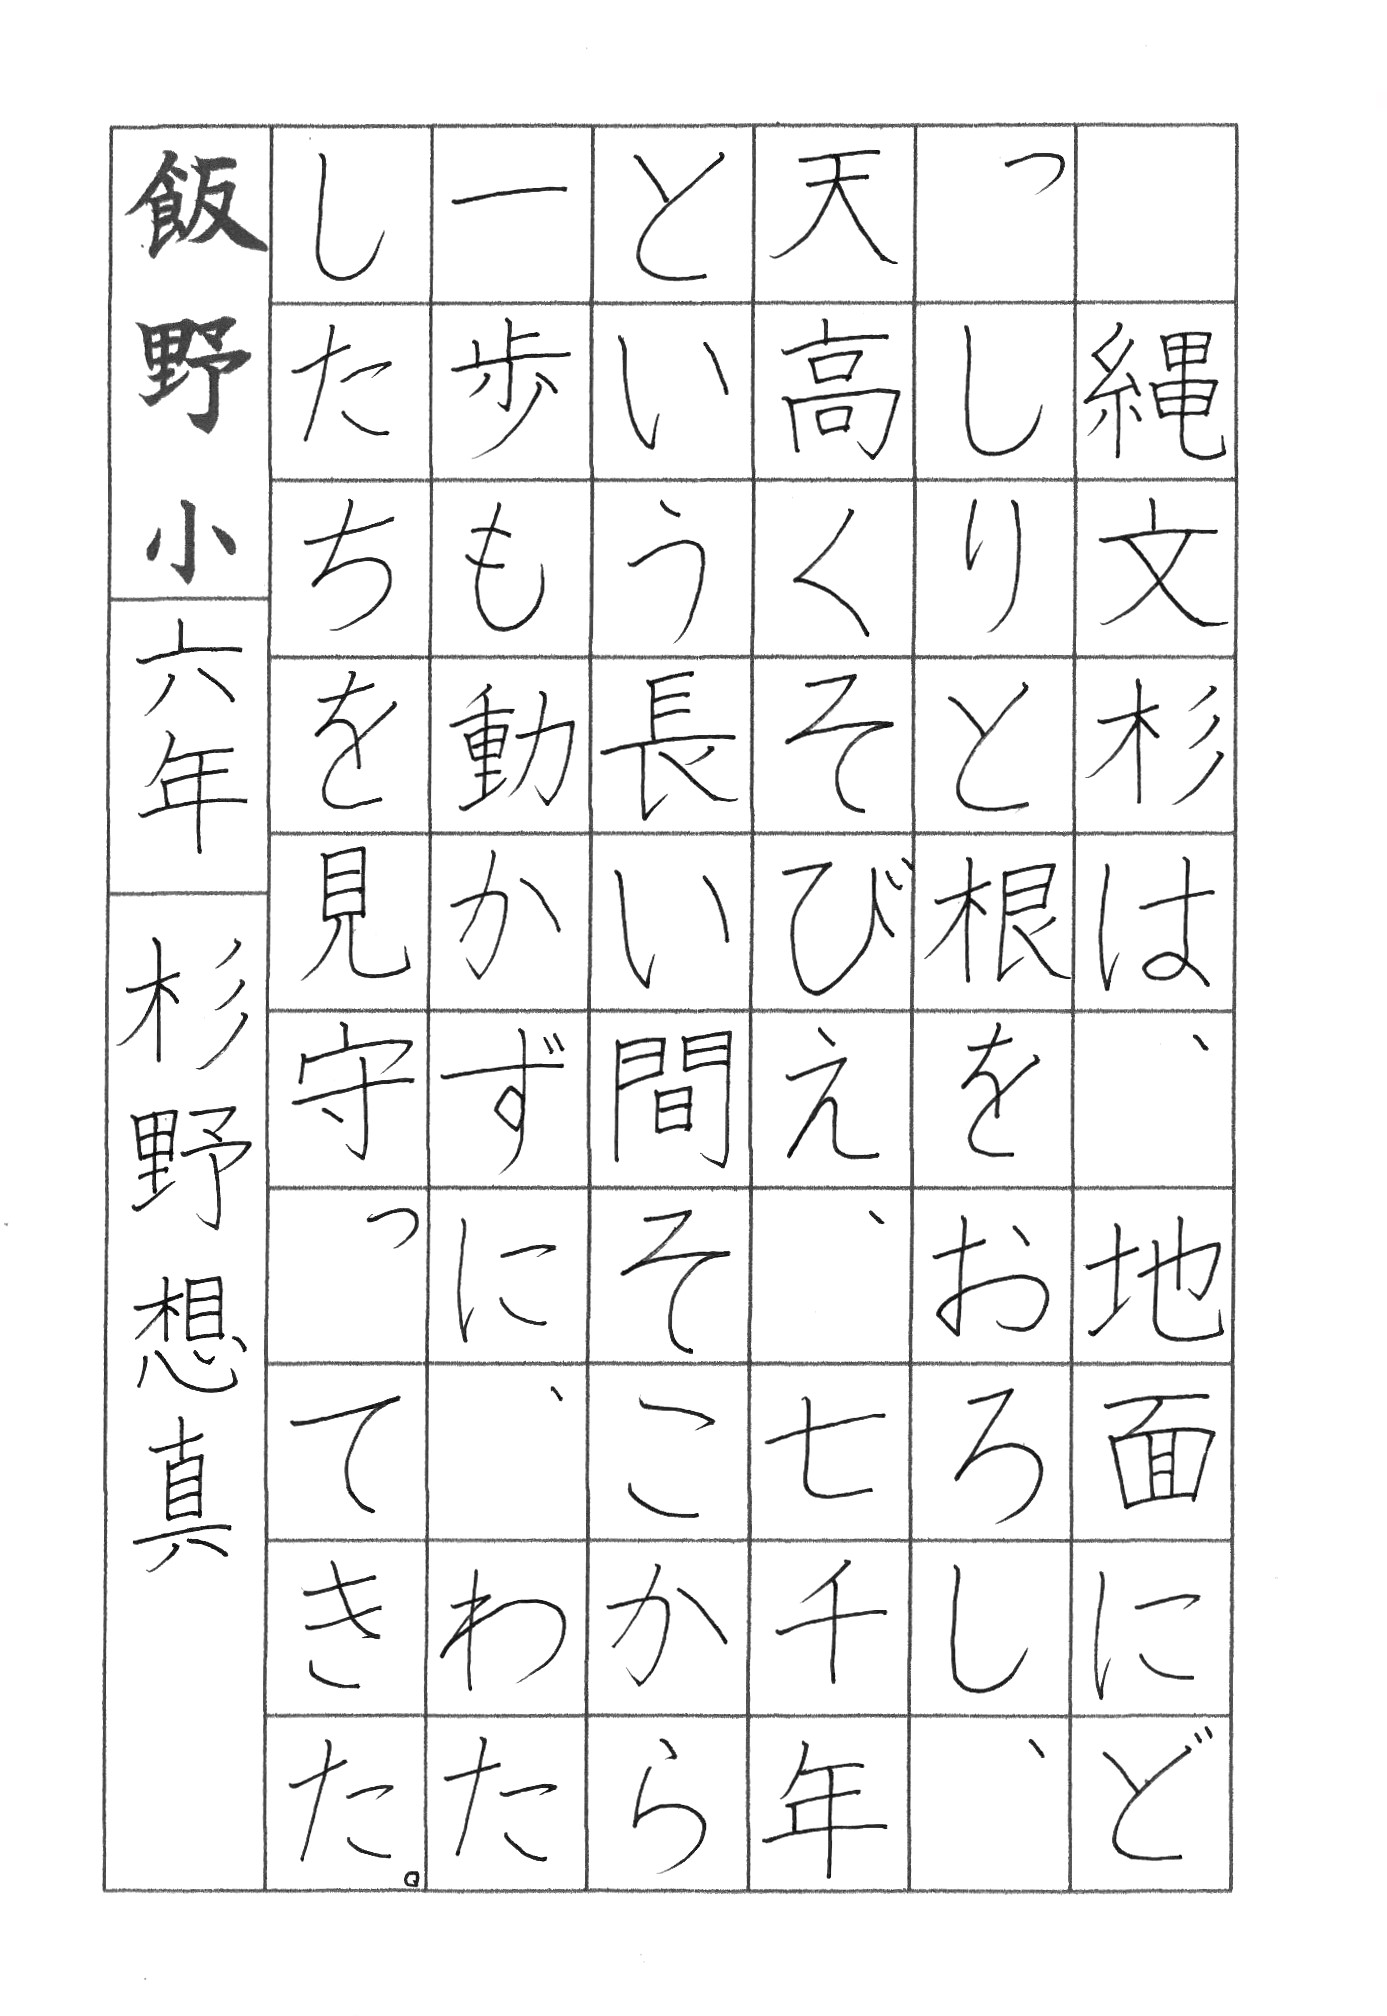 縄文杉は、地面にど
っしりと根をおろし、
天高くそびえ、七千年
という長い間そこから
一歩も動かずに、わた
したちを見守ってきた。
飯野小 六年 杉野想真